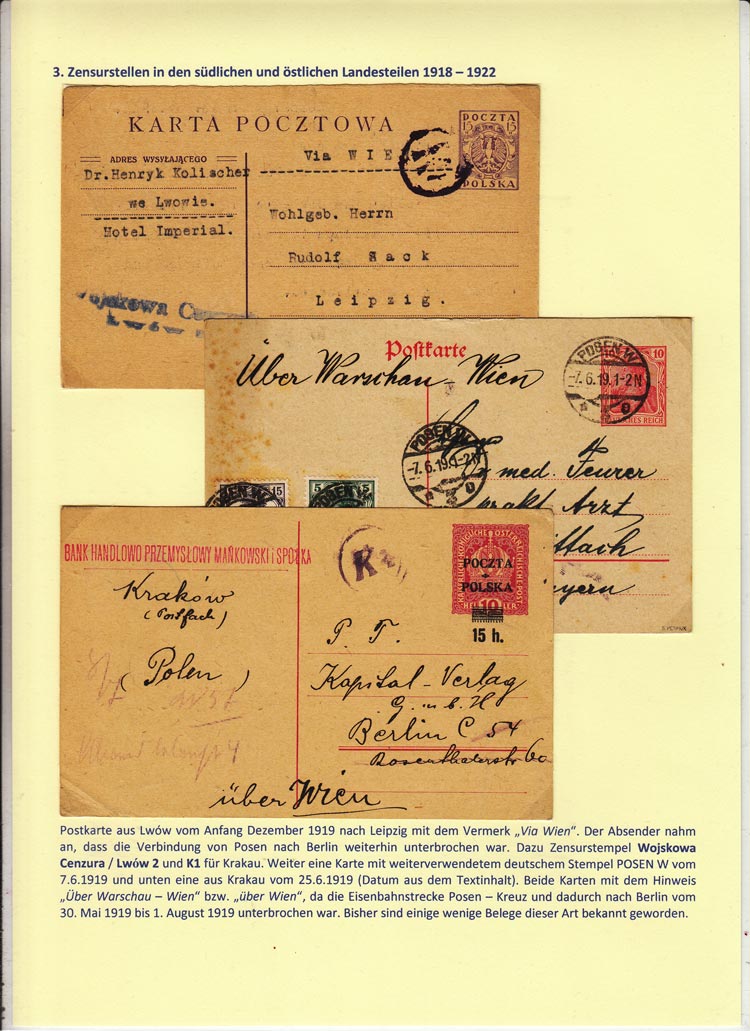 3. Zensurstellen in den südlichen und östlichen Landesteilen 1918 – 1922
KARTA POCZTOWA
POCZTA
15 15
POLSKA
ADRES WYSYŁAJĄCEGO
Via WIE
Dr.Henryk Kolischer
we Lwowie.
Hotel Imperial.
Wohlgeb. Herrn
Rudolf Sack
Leipzig.
Wojskowa
Postkarte
Über Warschau-Wien
POSEN W
-7.6.19.1-2N
10
REICH
POSEN W
-7.6.19.1-2N
med. Feurer
prakt. Arzt
15
5
POSEN W
POSEN W
BANK HANDLOWO PRZEMYSŁOWY MAŃKOWSKI i SPÓŁKA
K
KAISERLICHE KÖNIGLICHE ÖSTERREICHISCHE POST
POCZTA
POLSKA
HELLER
10
15 h.
Kraków
(Postfach)
(Polen)
P. T.
Kapital-Verlag
G. m. b. H
Berlin C 54
Rosenthalerstr 60
über Wien
Postkarte aus Lwów vom Anfang Dezember 1919 nach Leipzig mit dem Vermerk „Via Wien“. Der Absender nahm
an, dass die Verbindung von Posen nach Berlin weiterhin unterbrochen war. Dazu Zensurstempel Wojskowa
Cenzura / Lwów 2 und K1 für Krakau. Weiter eine Karte mit weiterverwendetem deutschem Stempel POSEN W vom
7.6.1919 und unten eine aus Krakau vom 25.6.1919 (Datum aus dem Textinhalt). Beide Karten mit dem Hinweis
„Über Warschau – Wien“ bzw. „über Wien“, da die Eisenbahnstrecke Posen – Kreuz und dadurch nach Berlin vom
30. Mai 1919 bis 1. August 1919 unterbrochen war. Bisher sind einige wenige Belege dieser Art bekannt geworden.